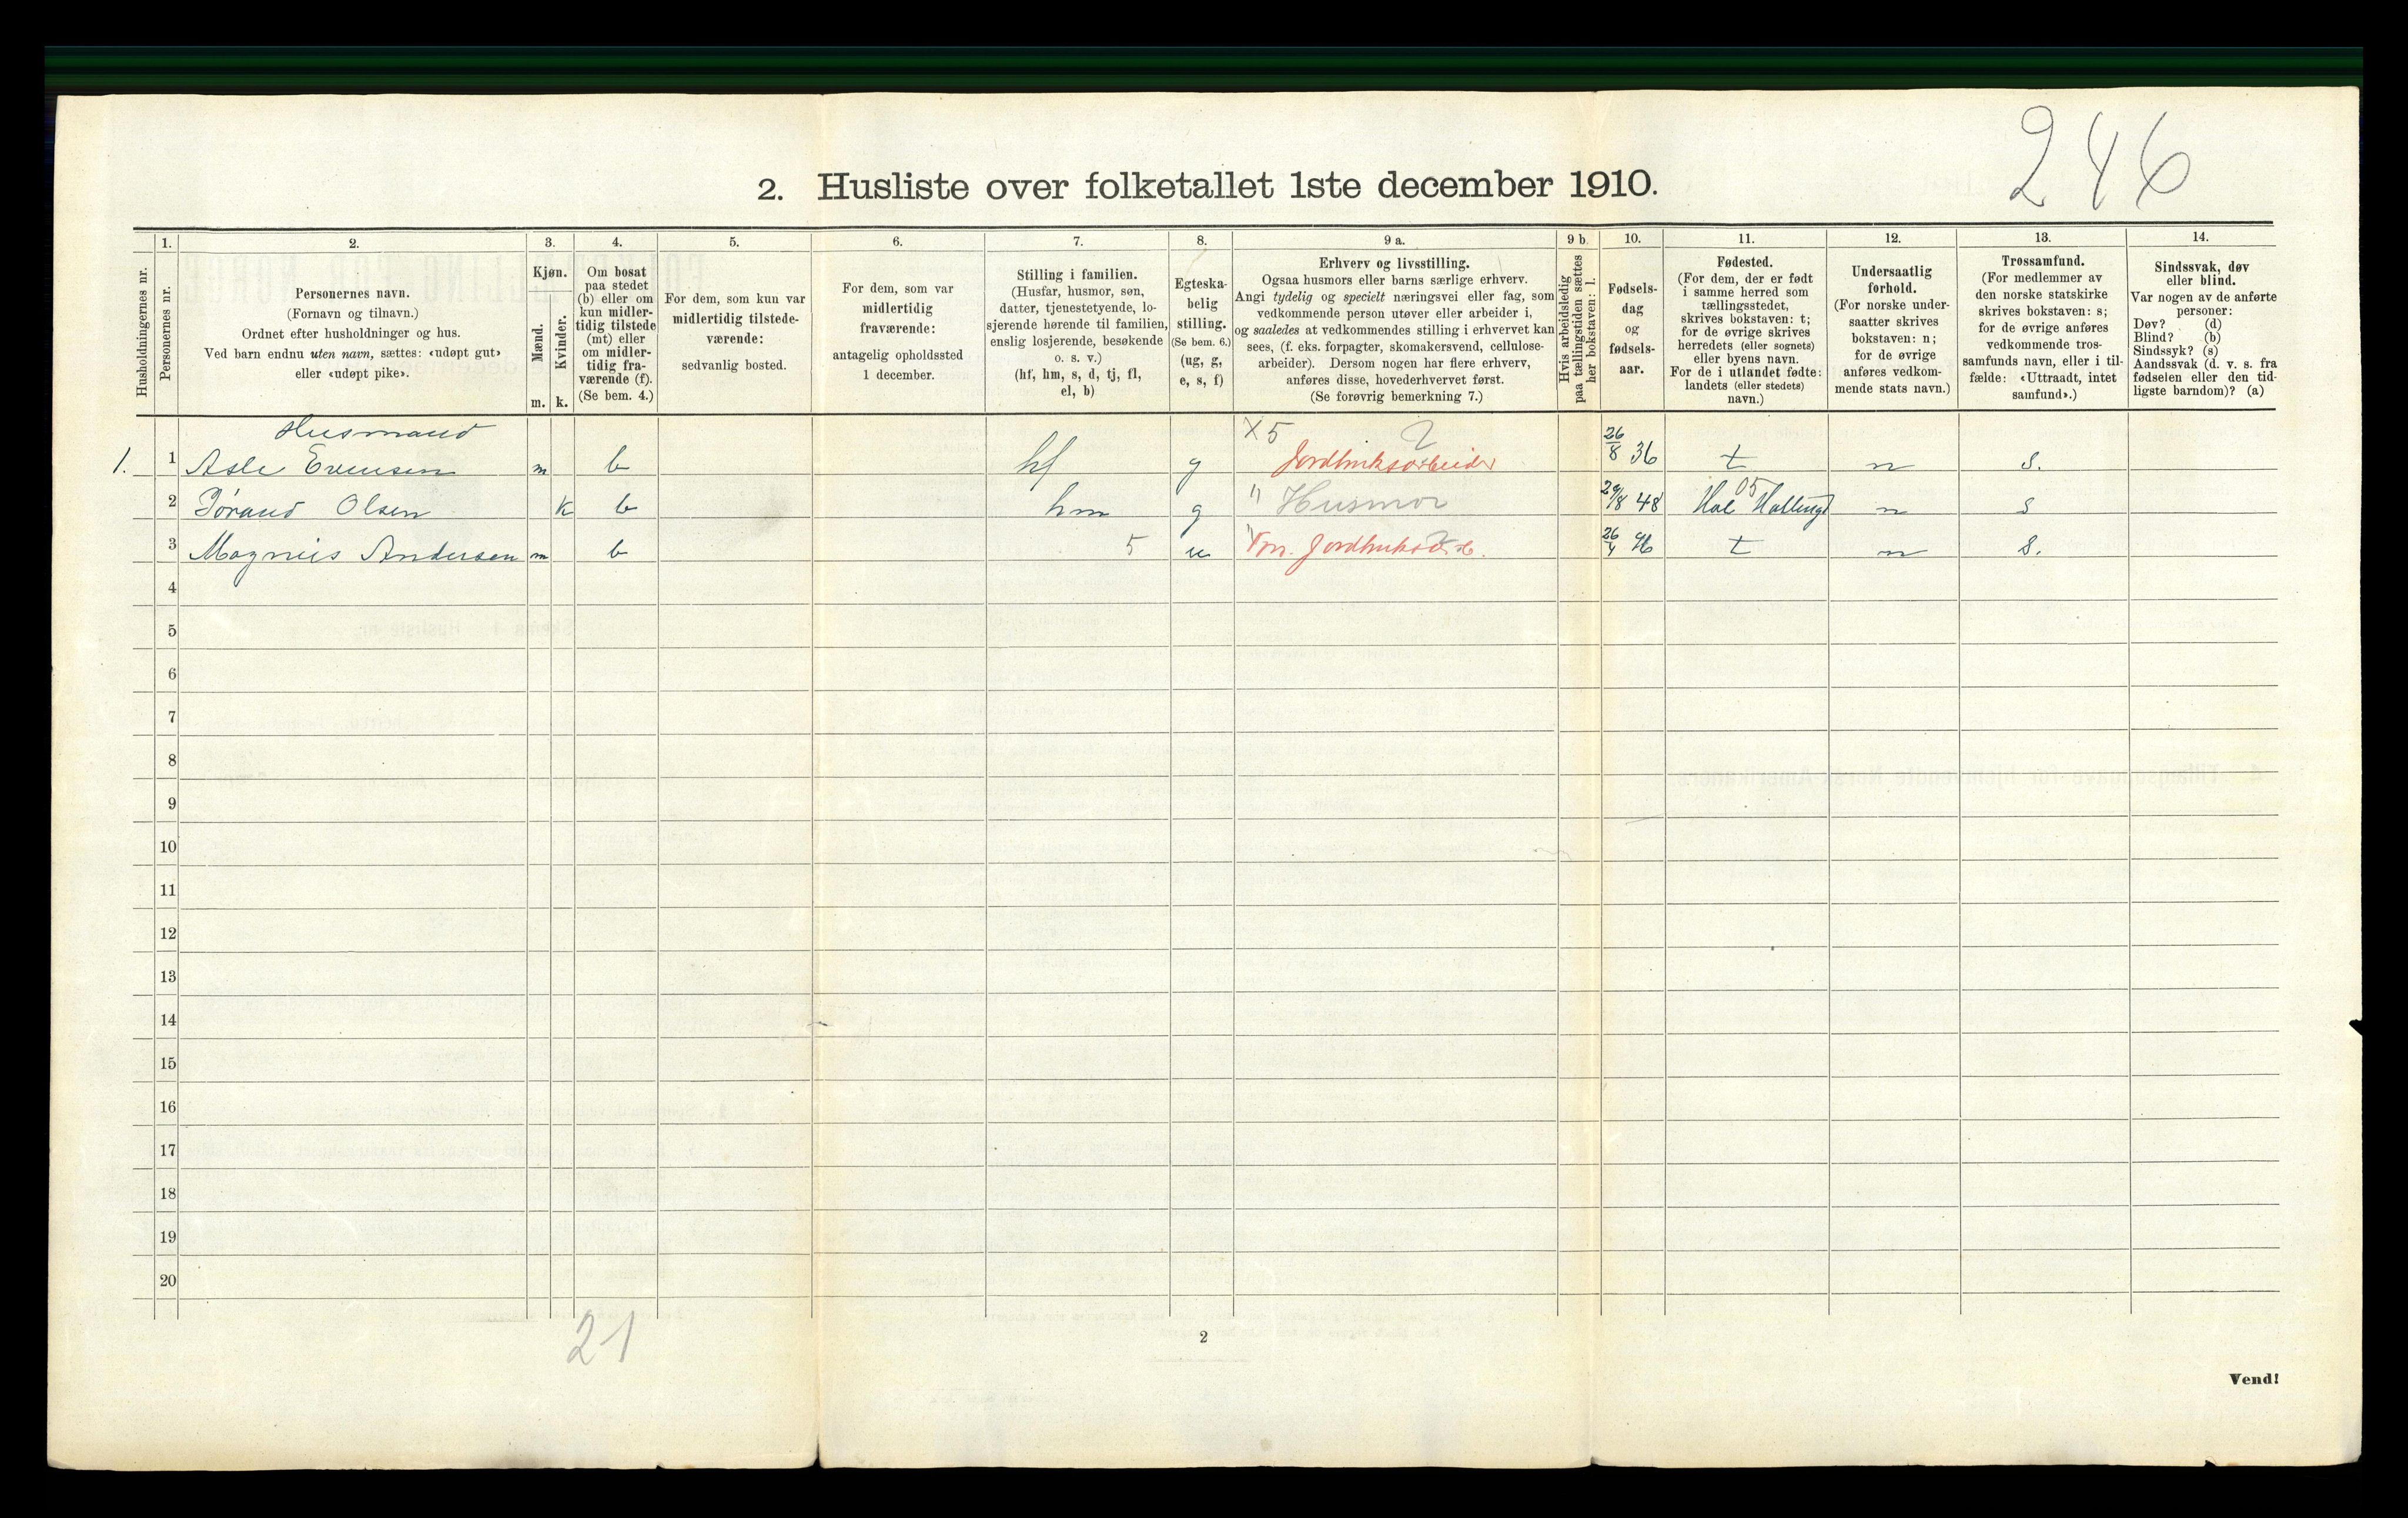 246
2. Husliste over folketallet 1ste december 1910.
Husholdningernes nr.
1.
Personernes nr.
2.
Personernes navn.
(Fornavn og tilnavn.)
Ordnet efter husholdninger og hus.
Ved barn endnu uten navn, sættes: «udøpt gut»
eller «udøpt pike».
3.
Kjøn.
Mænd.
Kvinder.
m. k.
4.
Om bosat
paa stedet
(b) eller om
kun midler-
tidig tilstede
(mt) eller
om midler-
tidig fra-
værende (f).
(Se bem. 4.)
5.
For dem, som kun var
midlertidig tilstede-
værende:
sedvanlig bosted.
6.
For dem, som var
midlertidig
fraværende:
antagelig opholdssted
1 december.
7.
Stilling i familien.
(Husfar, husmor, søn,
datter, tjenestetyende, lo-
sjerende hørende til familien,
enslig losjerende, besøkende
o. s. v.)
(hf, hm, s, d, tj, fl,
el, b)
8.
Egteska-
belig
stilling.
(Se bem. 6.)
(ug, g,
e, s, f)
9 a.
Erhverv og livsstilling.
Ogsaa husmors eller barns særlige erhverv.
Angi tydelig og specielt næringsvei eller fag, som
vedkommende person utøver eller arbeider i,
og saaledes at vedkommendes stilling i erhvervet kan
sees, (f. eks. forpagter, skomakersvend, cellulose-
arbeider). Dersom nogen har flere erhverv,
anføres disse, hovederhvervet først.
(Se forøvrig bemerkning 7.)
9 b.
Hvis arbeidsledig
paa tællingstiden sættes
her bokstaven: l.
10.
Fødsels-
dag
og
fødsels-
aar.
11.
Fødested.
(For dem, der er født
i samme herred som
tællingsstedet,
skrives bokstaven: t;
for de øvrige skrives
herredets (eller sognets)
eller byens navn.
For de i utlandet fødte:
landets (eller stedets)
navn.)
12.
Undersaatlig
forhold.
(For norske under-
saatter skrives
bokstaven: n;
for de øvrige
anføres vedkom-
mende stats navn.)
13.
Trossamfund.
(For medlemmer av
den norske statskirke
skrives bokstaven: s;
for de øvrige anføres
vedkommende tros-
samfunds navn, eller i til-
fælde: «Uttraadt, intet
samfund».)
14.
Sindssvak, døv
eller blind.
Var nogen av de anførte
personer:
Døv? (d)
Blind? (b)
Sindssyk? (s)
Aandssvak (d. v. s. fra
fødselen eller den tid-
ligste barndom)? (a)
Husmand X5
1. 1 Asle Evensen m b hf g Jordbruksarbeider 26/8 36 t n s.
05
2 Jørand Olsen k b hm g " Husmor 29/8 48 Hol Hallingd n s
3 Magnus Andersen m b 5 26/4 t n s.
4
5
6
7
8
9
10
11
12
13
14
15
16
17
18
19
20
21
2
Vend!